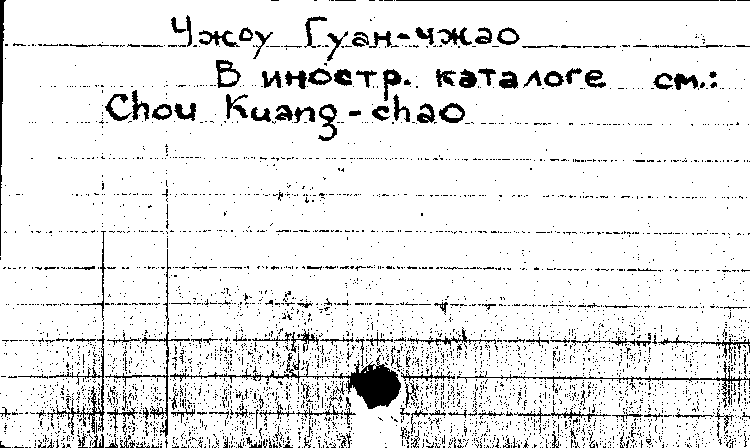 Чжоу Гуан-чжао
В иностр. каталоге см.:
Chou Kuang-chao